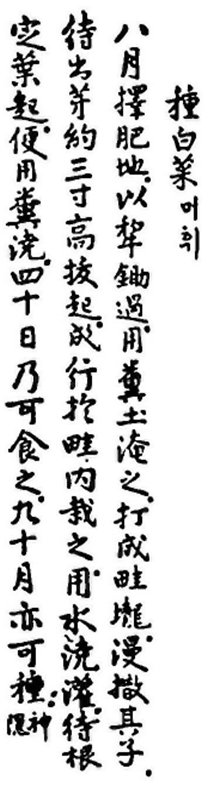 種白菜 머휘
八月擇肥地.以犂鋤過.用糞土淹之.打成畦壠.漫撒其子.
待出芽約三寸高.拔起.成行於畦內栽之.用水澆灌.待根
定葉起.便用糞澆.四十日乃可食之.九十月亦可種.神隱